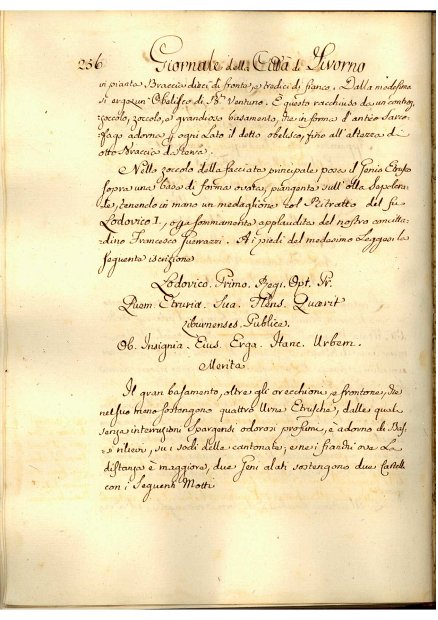 256 Giornale della Città di Livorno
in pianta Braccia dieci di fronte, e tredici di fianco. Dalla medesima
si erge un Obelisco di Bra Ventuno. E questo racchiuso da un contro,
zoccolo, zoccolo, e grandioso basamento, che in forma d'antico Sarco:
fago adorna p ogni Lato il detto obelisco, fino all'altezza di
otto Braccia da terra.
Nello zoccolo della facciata principale posa il Genio Etrusco
sopra una base di forma ovata, piangente sull'
tenendo in mano un medaglione col Ritratto del fu
Lodovico I., opra sommamente applaudita del nostro concitta:
dino Francesco . Ai piedi del medesimo Leggesi la
seguente iscrizione
Lodovico. Primo. Regi. Opt. Pr.
Quem. Etruria. Sua. Flens. Quaerit
Liburnenses. Publice.
Ob. Insignia. Eius. Erga. Hanc. Urbem.
Merita.
Il gran basamento, oltre gli orecchioni, e frontone, che
nel suo piano sostengono quattro Urne Etrusche, dalle quali
senza interruzioni spargensi odorosi profumi, è adorno di Bas:
si rilievi, su i sodi delle cantonate, e nei fianchi ove La
distanza è maggiore, due Geni alati sostengono due
con i seguenti Motti